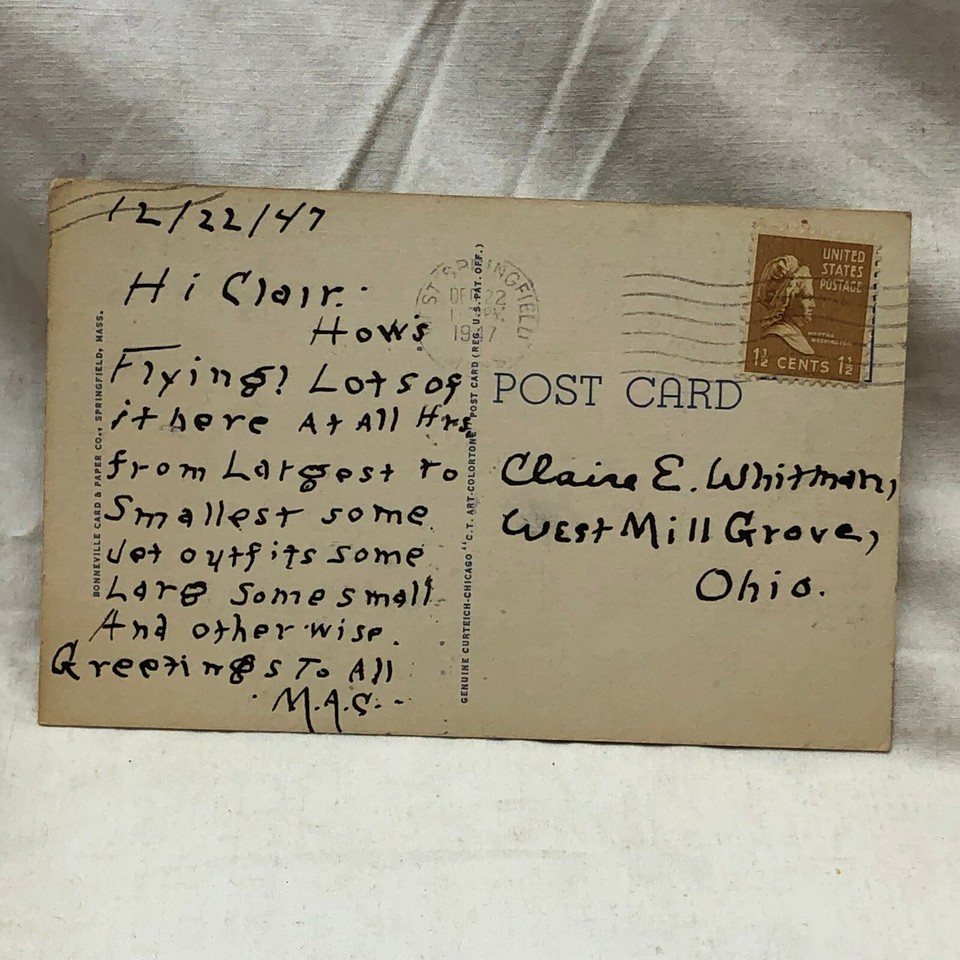 12/22/47
Hi Clair.
How's
Flying? Lots of
it here At All Hrs.
from Largest to
Smallest some
Jet outfits some
Larg some small
And otherwise.
Greetings To All
M.A.C.
BONNEVILLE CARD & PAPER CO., SPRINGFIELD, MASS.
GENUINE CURTEICH-CHICAGO "C.T. ART-COLORTONE" POST CARD (REG. U.S. PAT. OFF.)
SPRINGFIELD
DEC 22
UNITED
STATES
POSTAGE
MARTHA
WASHINGTON
1½ CENTS 1½
POST CARD
Claire E. Whitman,
West Mill Grove,
Ohio.